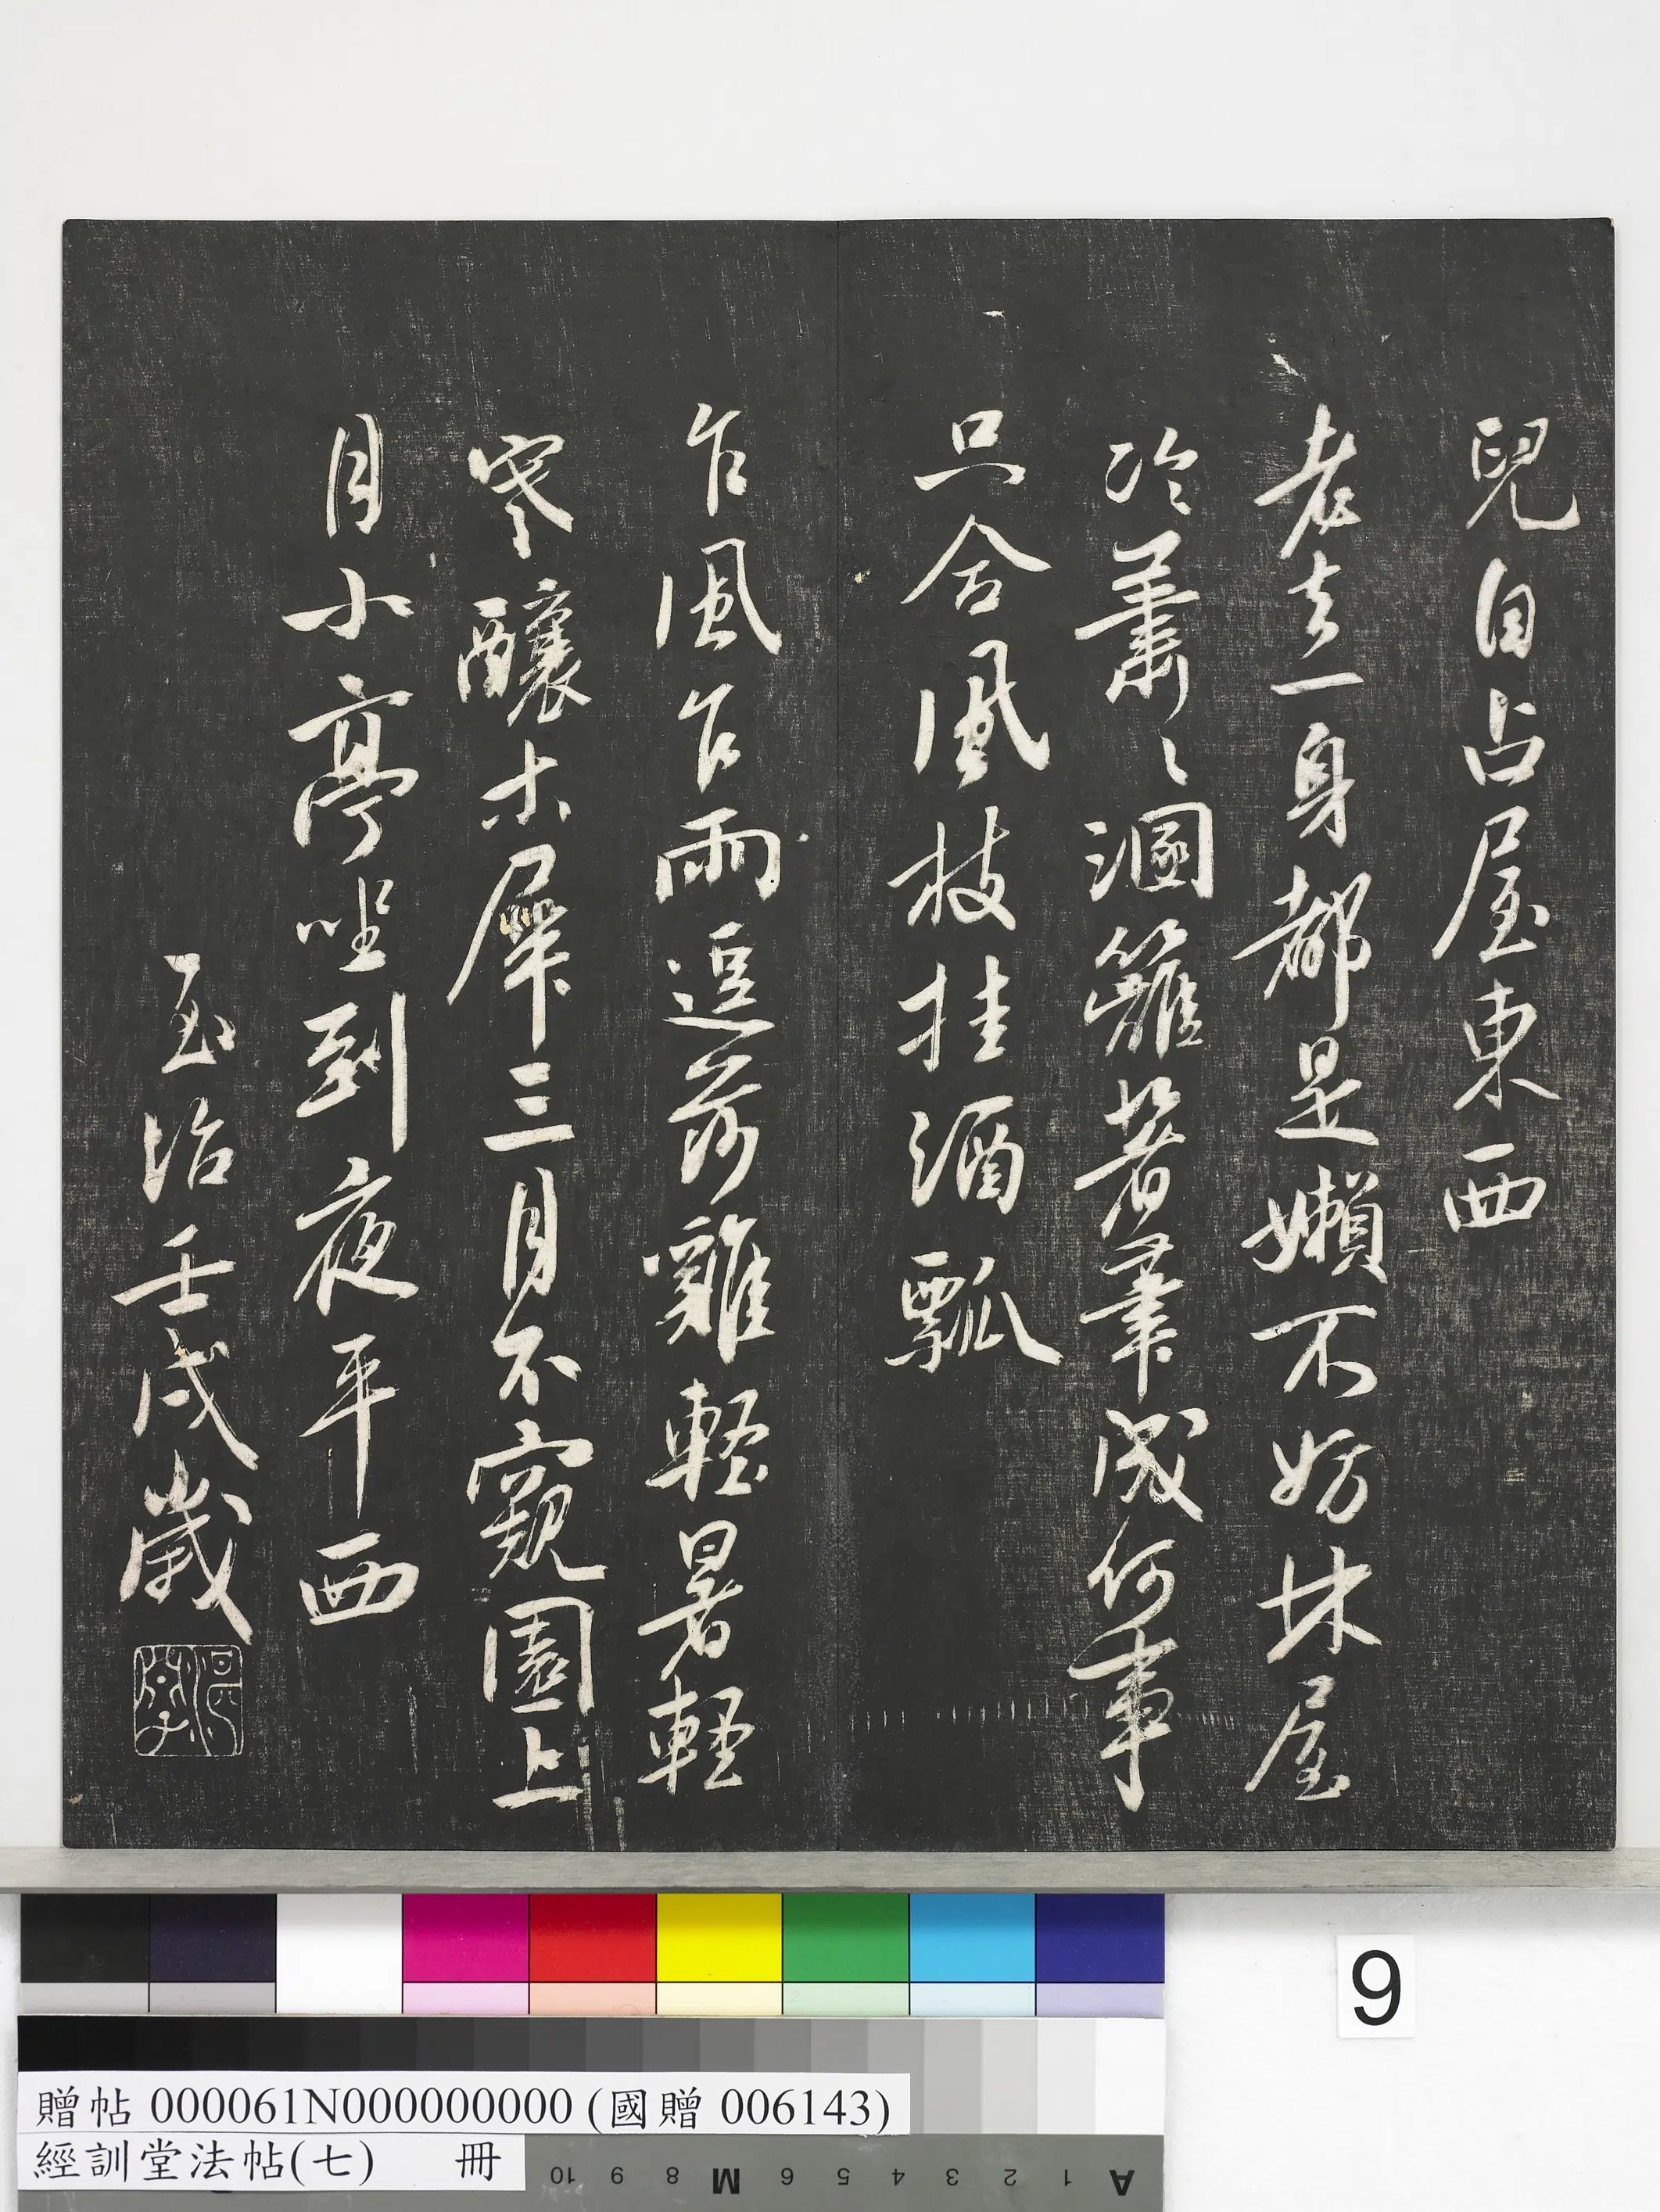 兒自占屋東西
老去一身都是嬾不妨林屋
冷蕭〻溷籬著筆成何事
只合風枝挂酒瓢
乍風乍雨逗荒雞輕暑輕
寒釀木犀三月不窺園上
月小亭坐到夜平西
至治壬戌歲
9
贈帖 000061N000000000 (國贈 006143)
經訓堂法帖(七) 冊
10 9 8 M 6 5 4 3 2 1 A